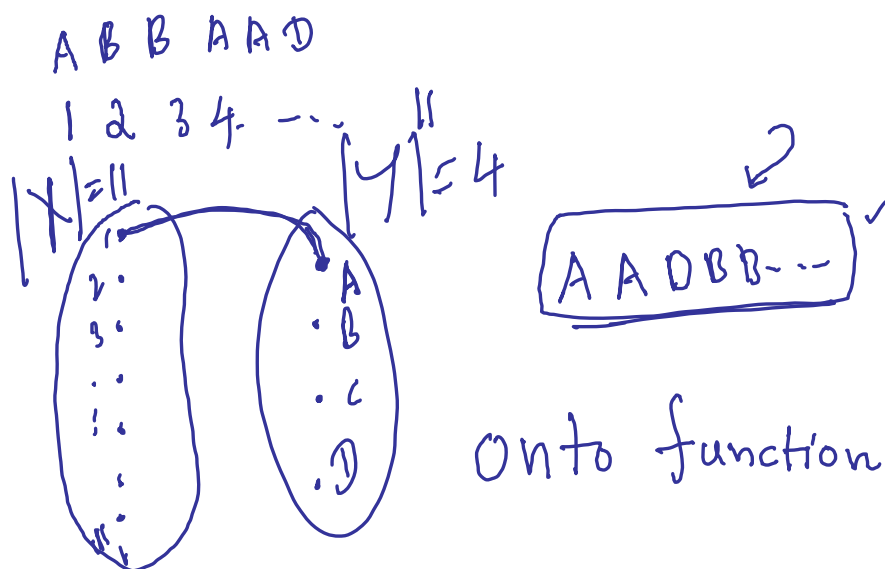 A B B A A D
1 2 3 4 ... 11
|X|=11
|Y|=4
1
2
3
.
:
11
A
B
C
D
A A D B B...
Onto function